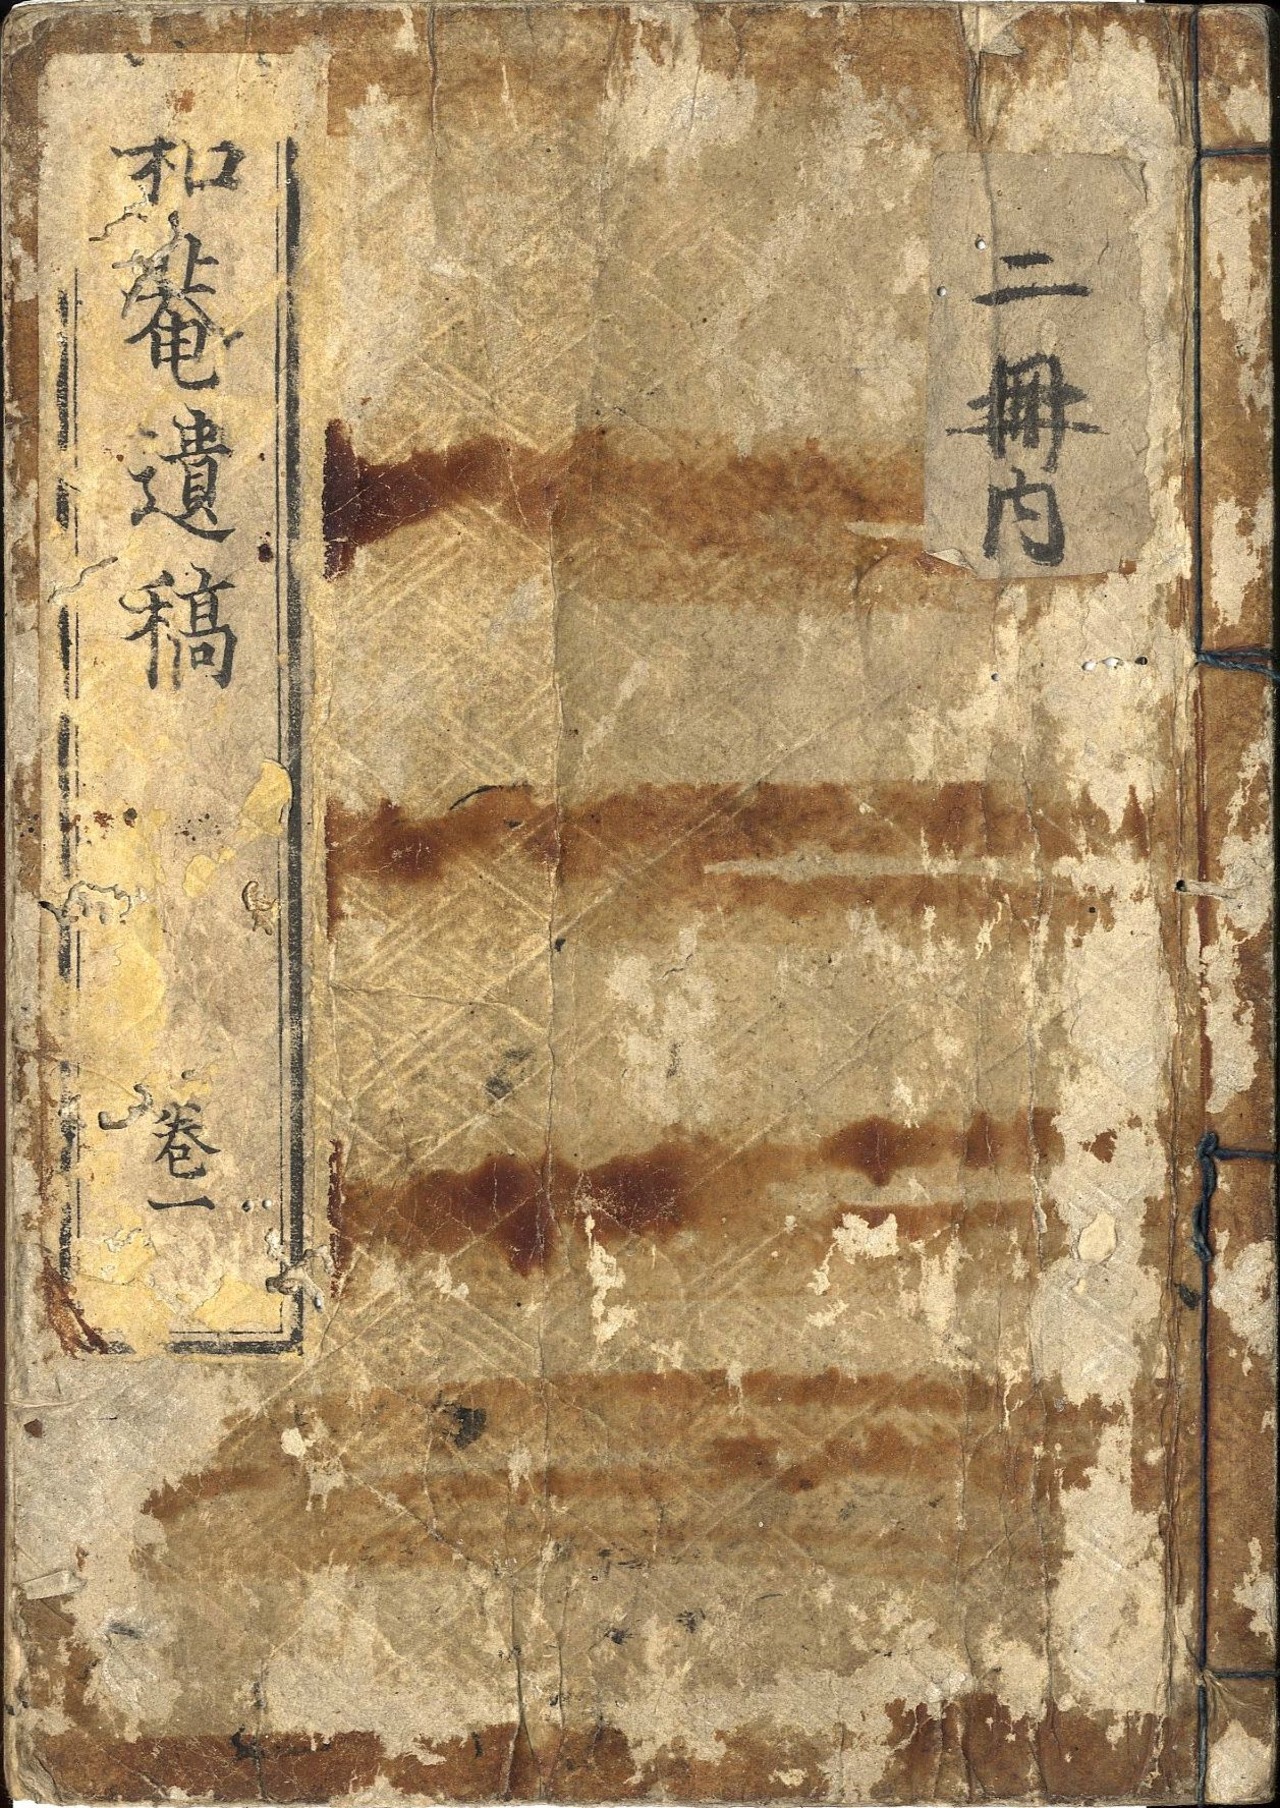 二冊内
和菴遺稿 卷一